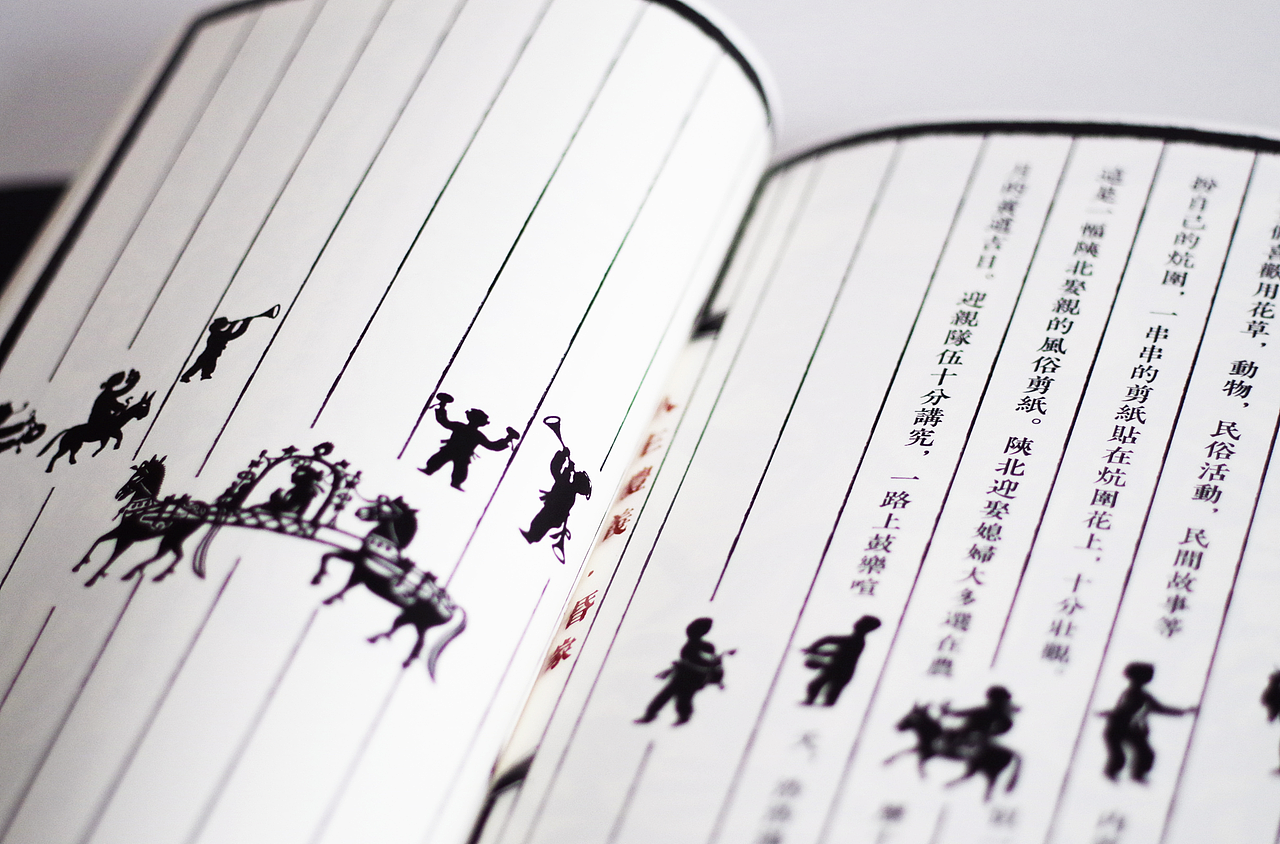 們喜歡用花草，動物，民俗活動，民間故事等
扮自己的炕圍，一串串的剪紙貼在炕圍花上，十分壯觀。
這是一幅陝北娶親的風俗剪紙。陝北迎娶媳婦大多選在農
月的黃道吉日。迎親隊伍十分講究，一路上鼓樂喧
天，